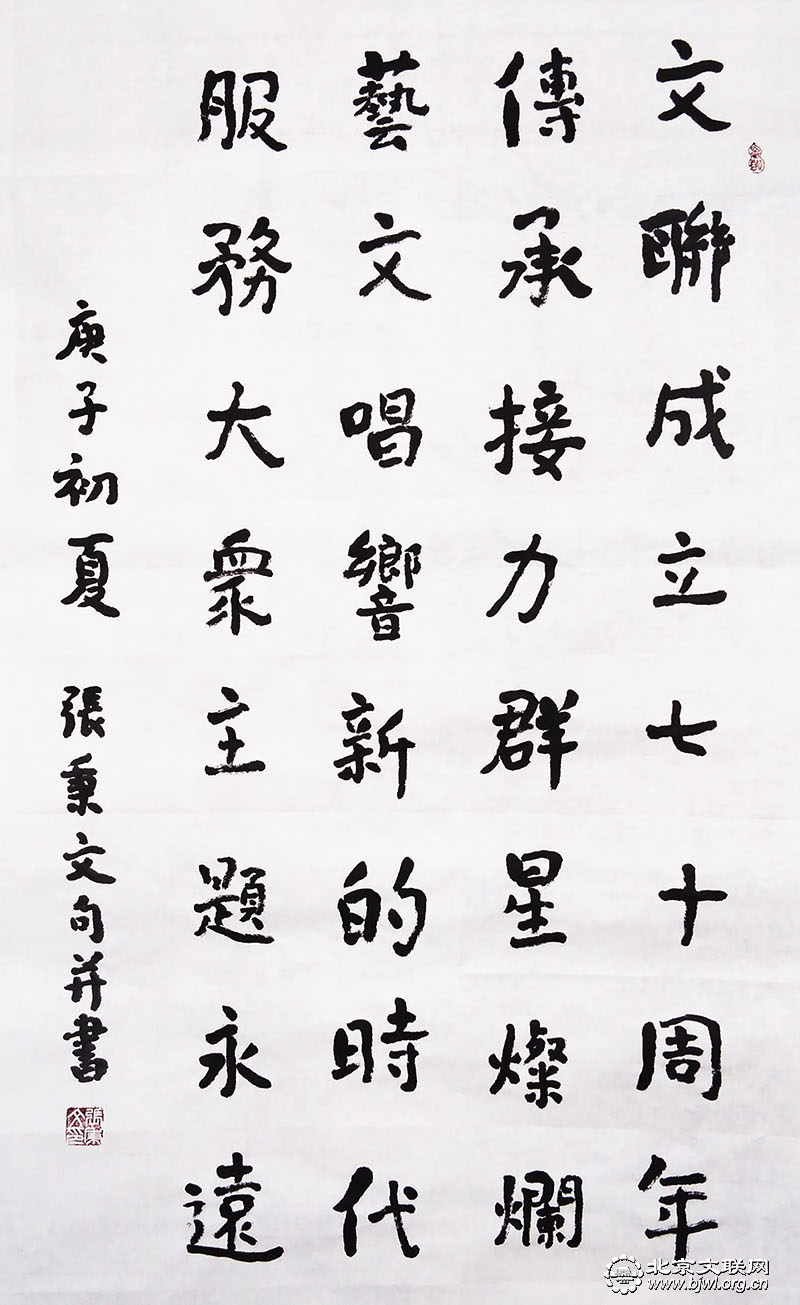 文聯成立七十周年
傳承接力群星燦爛
藝文唱響新的時代
服務大衆主題永遠
庚子初夏 張秉文句并書
張秉文印
北京文联网
www.bjwl.org.cn